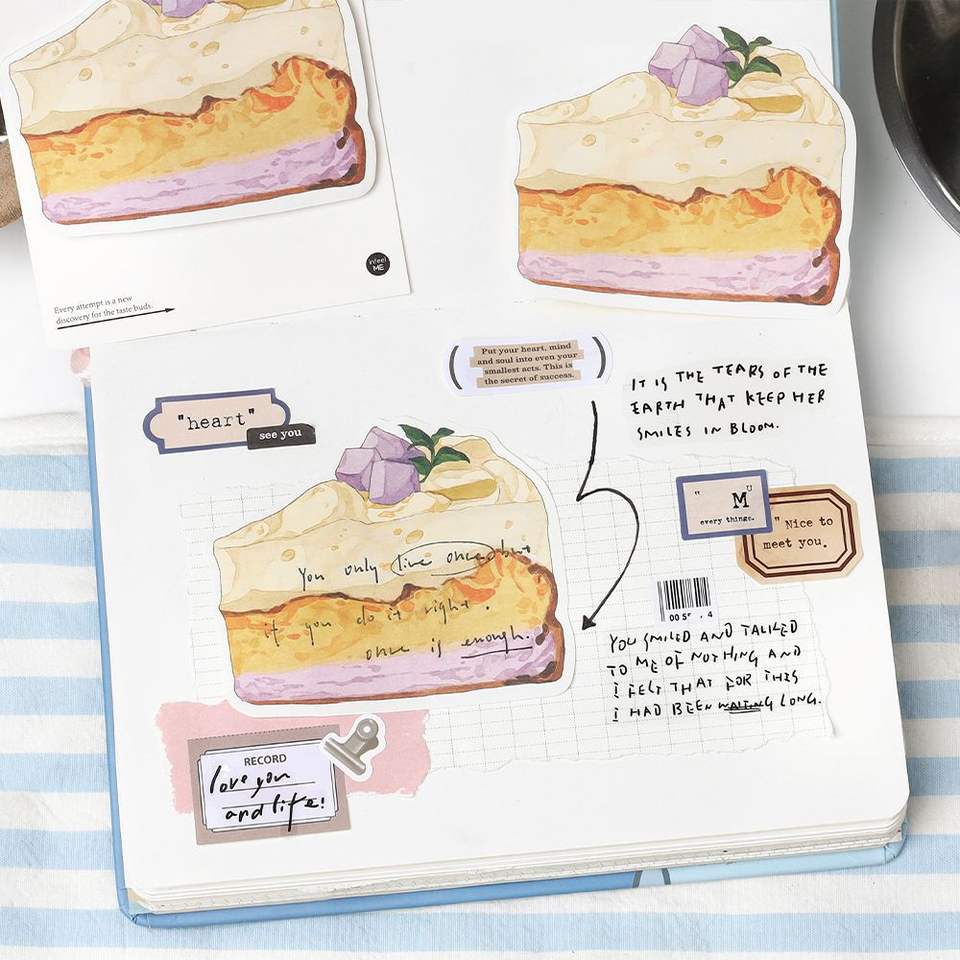 infeel
ME
Every attempt is a new
discovery for the taste buds.
Put your heart, mind
and soul into even your
smallest acts. This is
the secret of success.
IT IS THE TEARS OF THE
EARTH THAT KEEP HER
SMILES IN BLOOM.
"heart"
see you
" M U
every things.
" Nice to
meet you.
You only live once, but
if you do it right.
once is enough.
00 5 . 4
YOU SMILED AND TALKED
TO ME OF NOTHING AND
I FELT THAT FOR THIS
I HAD BEEN WAITING LONG.
RECORD
love you
and life!